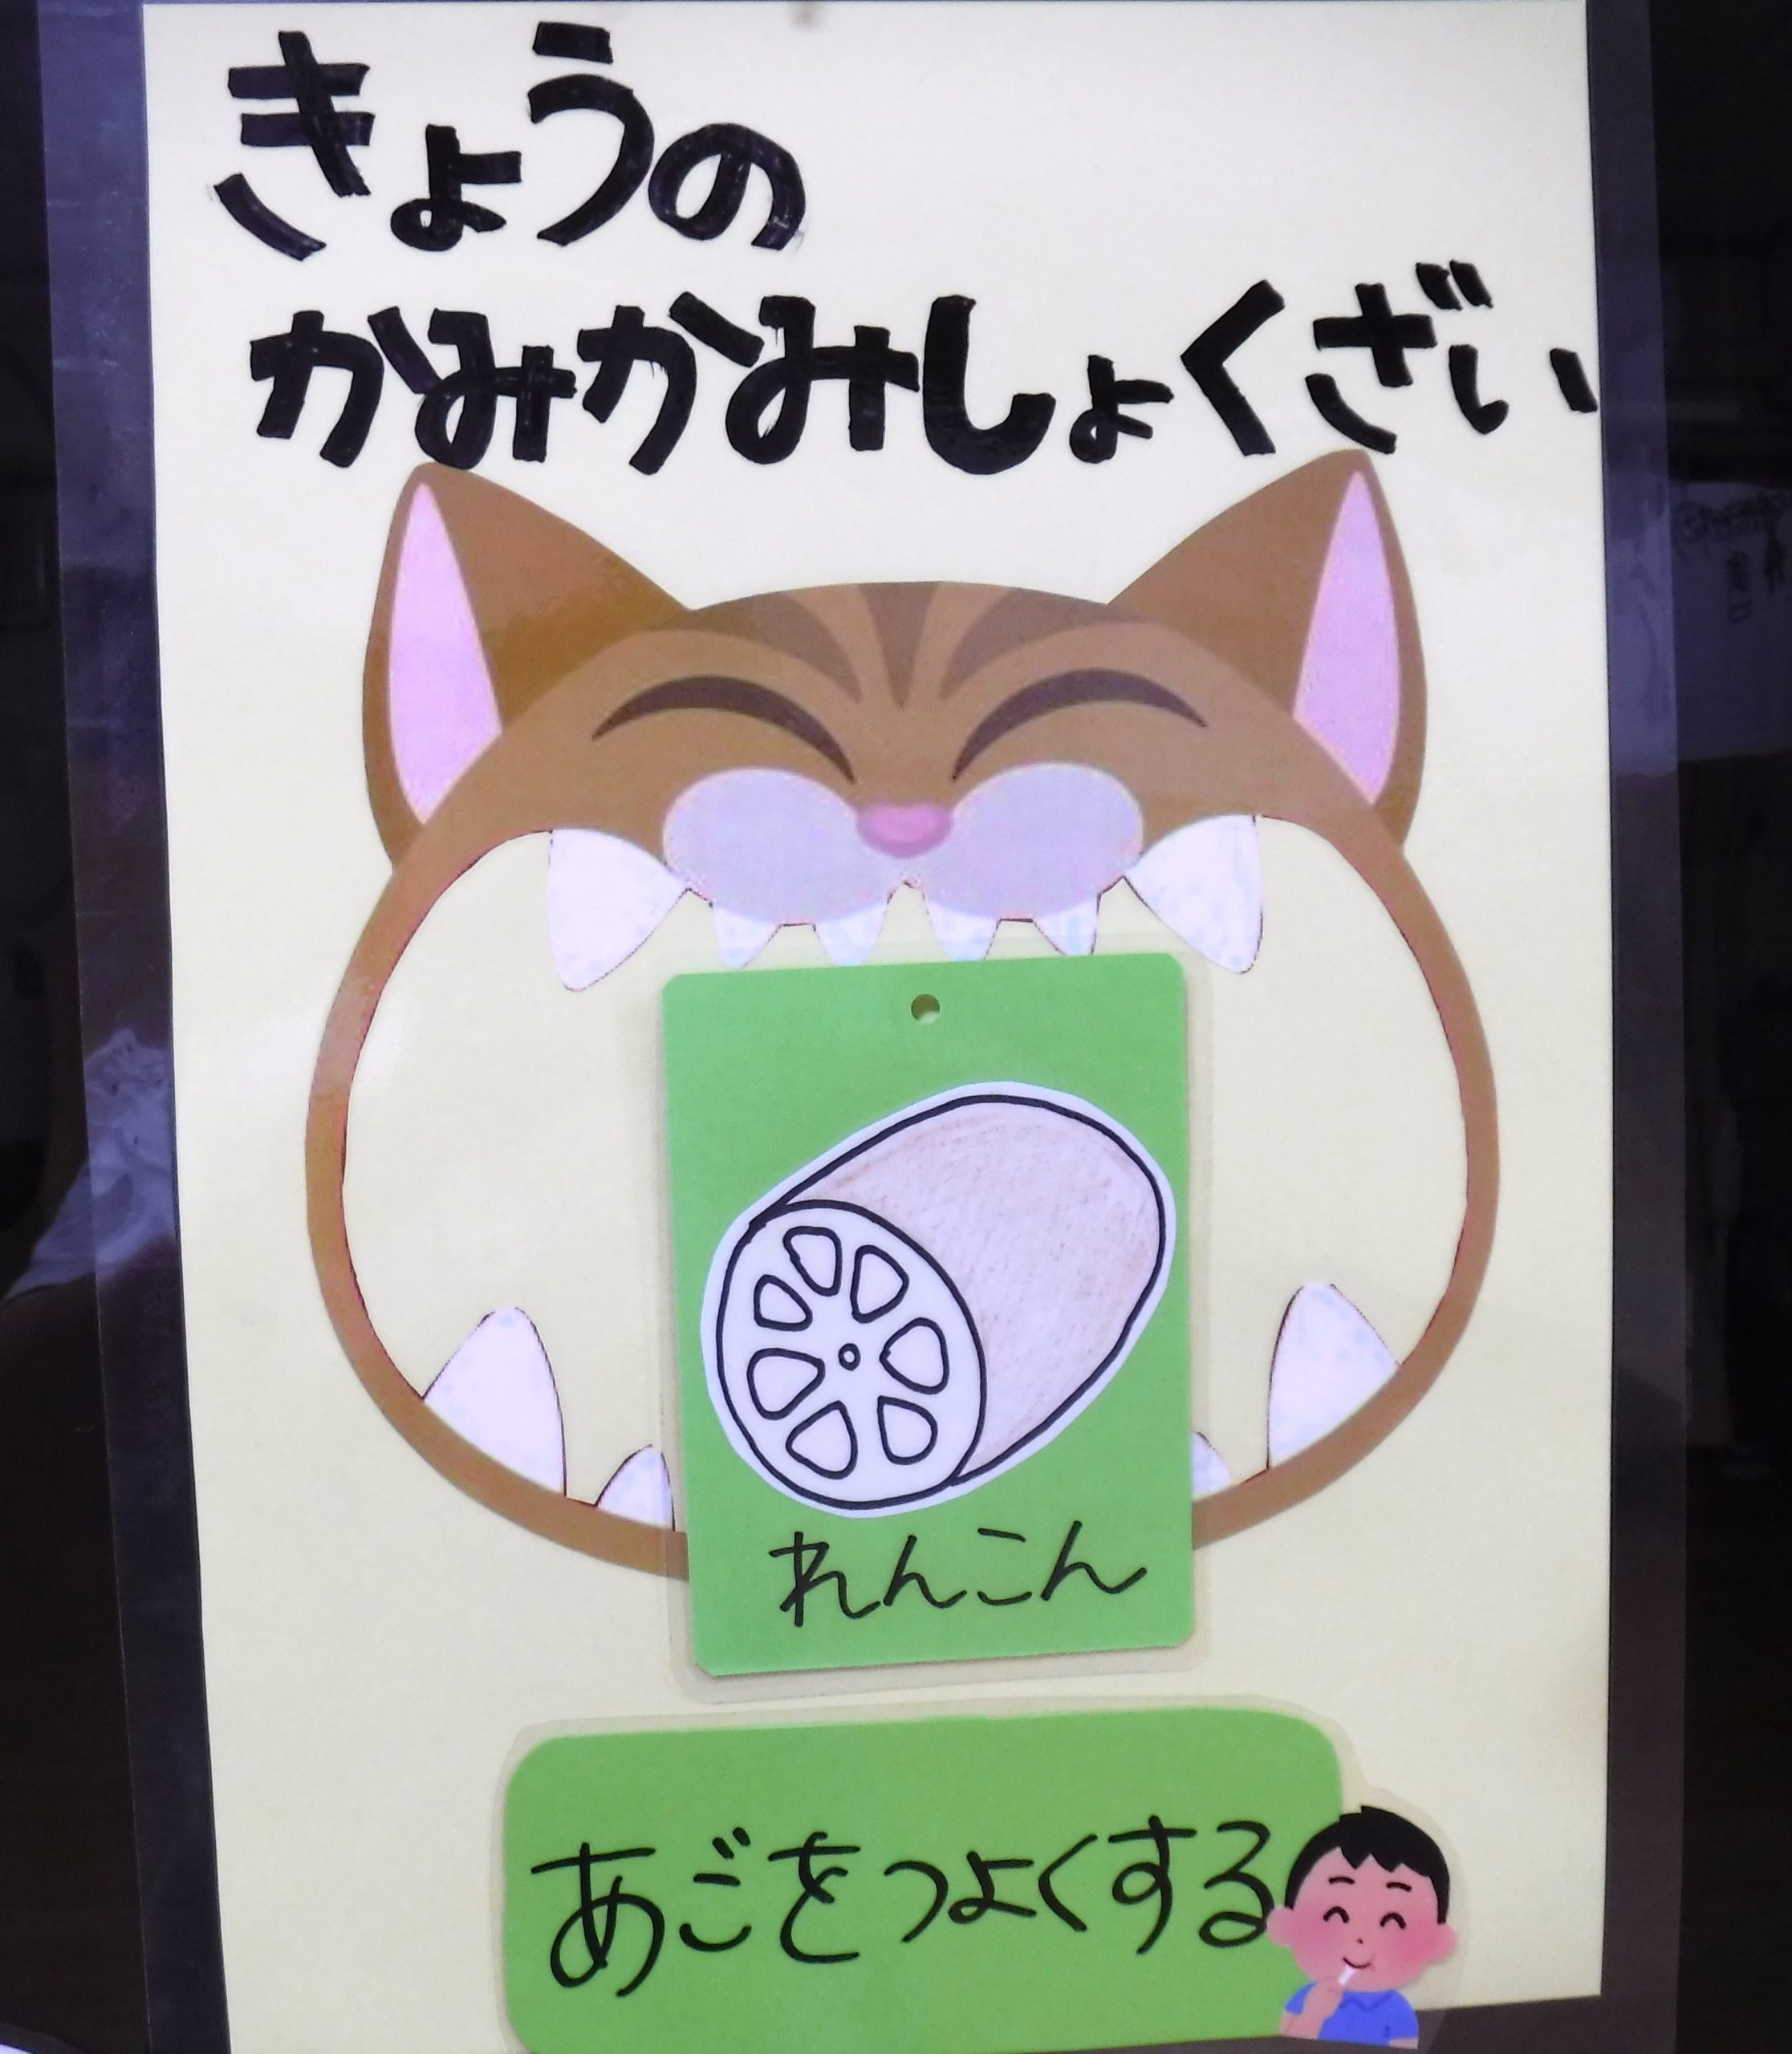 きょうの
かみかみしょくざい
れんこん
あごをつよくする